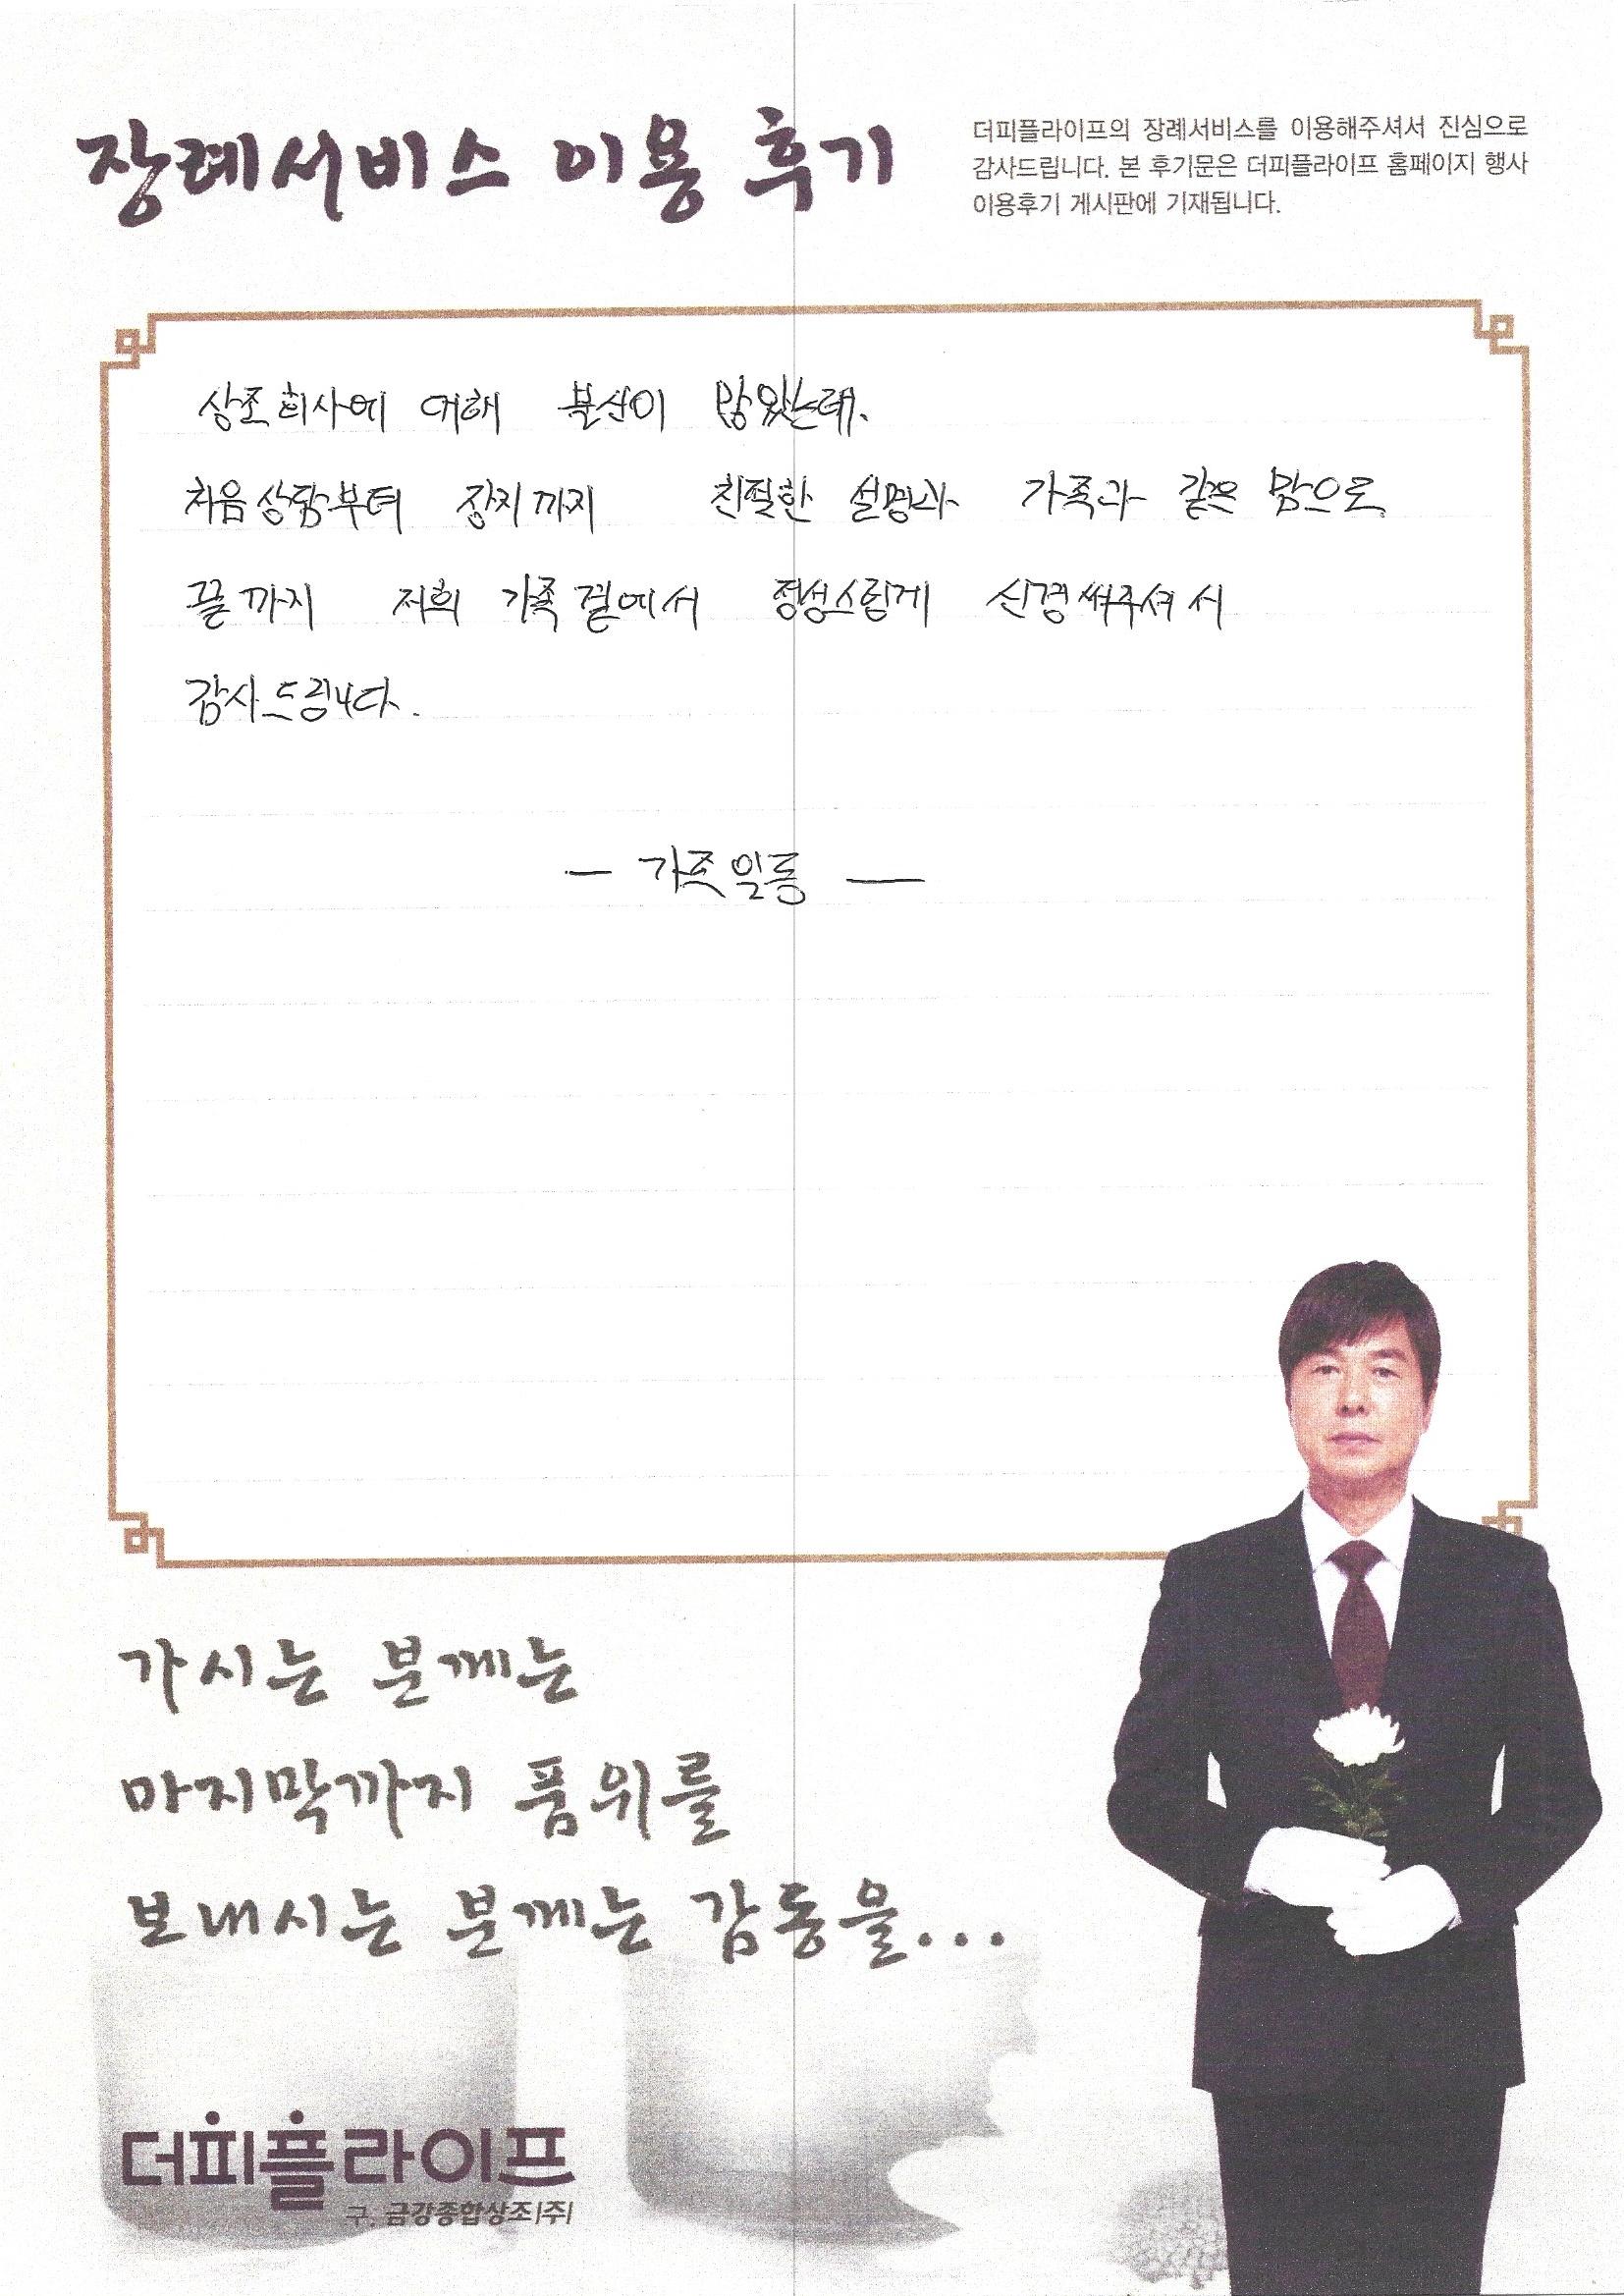 장례서비스 이용 후기
더피플라이프의 장례서비스를 이용해주셔서 진심으로
감사드립니다. 본 후기문은 더피플라이프 홈페이지 행사
이용후기 게시판에 기재됩니다.
상조회사에 대해 불신이 많았는데.
처음상담부터 장지까지 친절한 설명과 가족과 같은 맘으로
끝까지 저희 가족곁에서 정성스럽게 신경써주셔서
감사드립니다.
- 가족일동 -
가시는 분께는
마지막까지 품위를
보내시는 분께는 감동을...
더피플라이프
구. 금강종합상조(주)